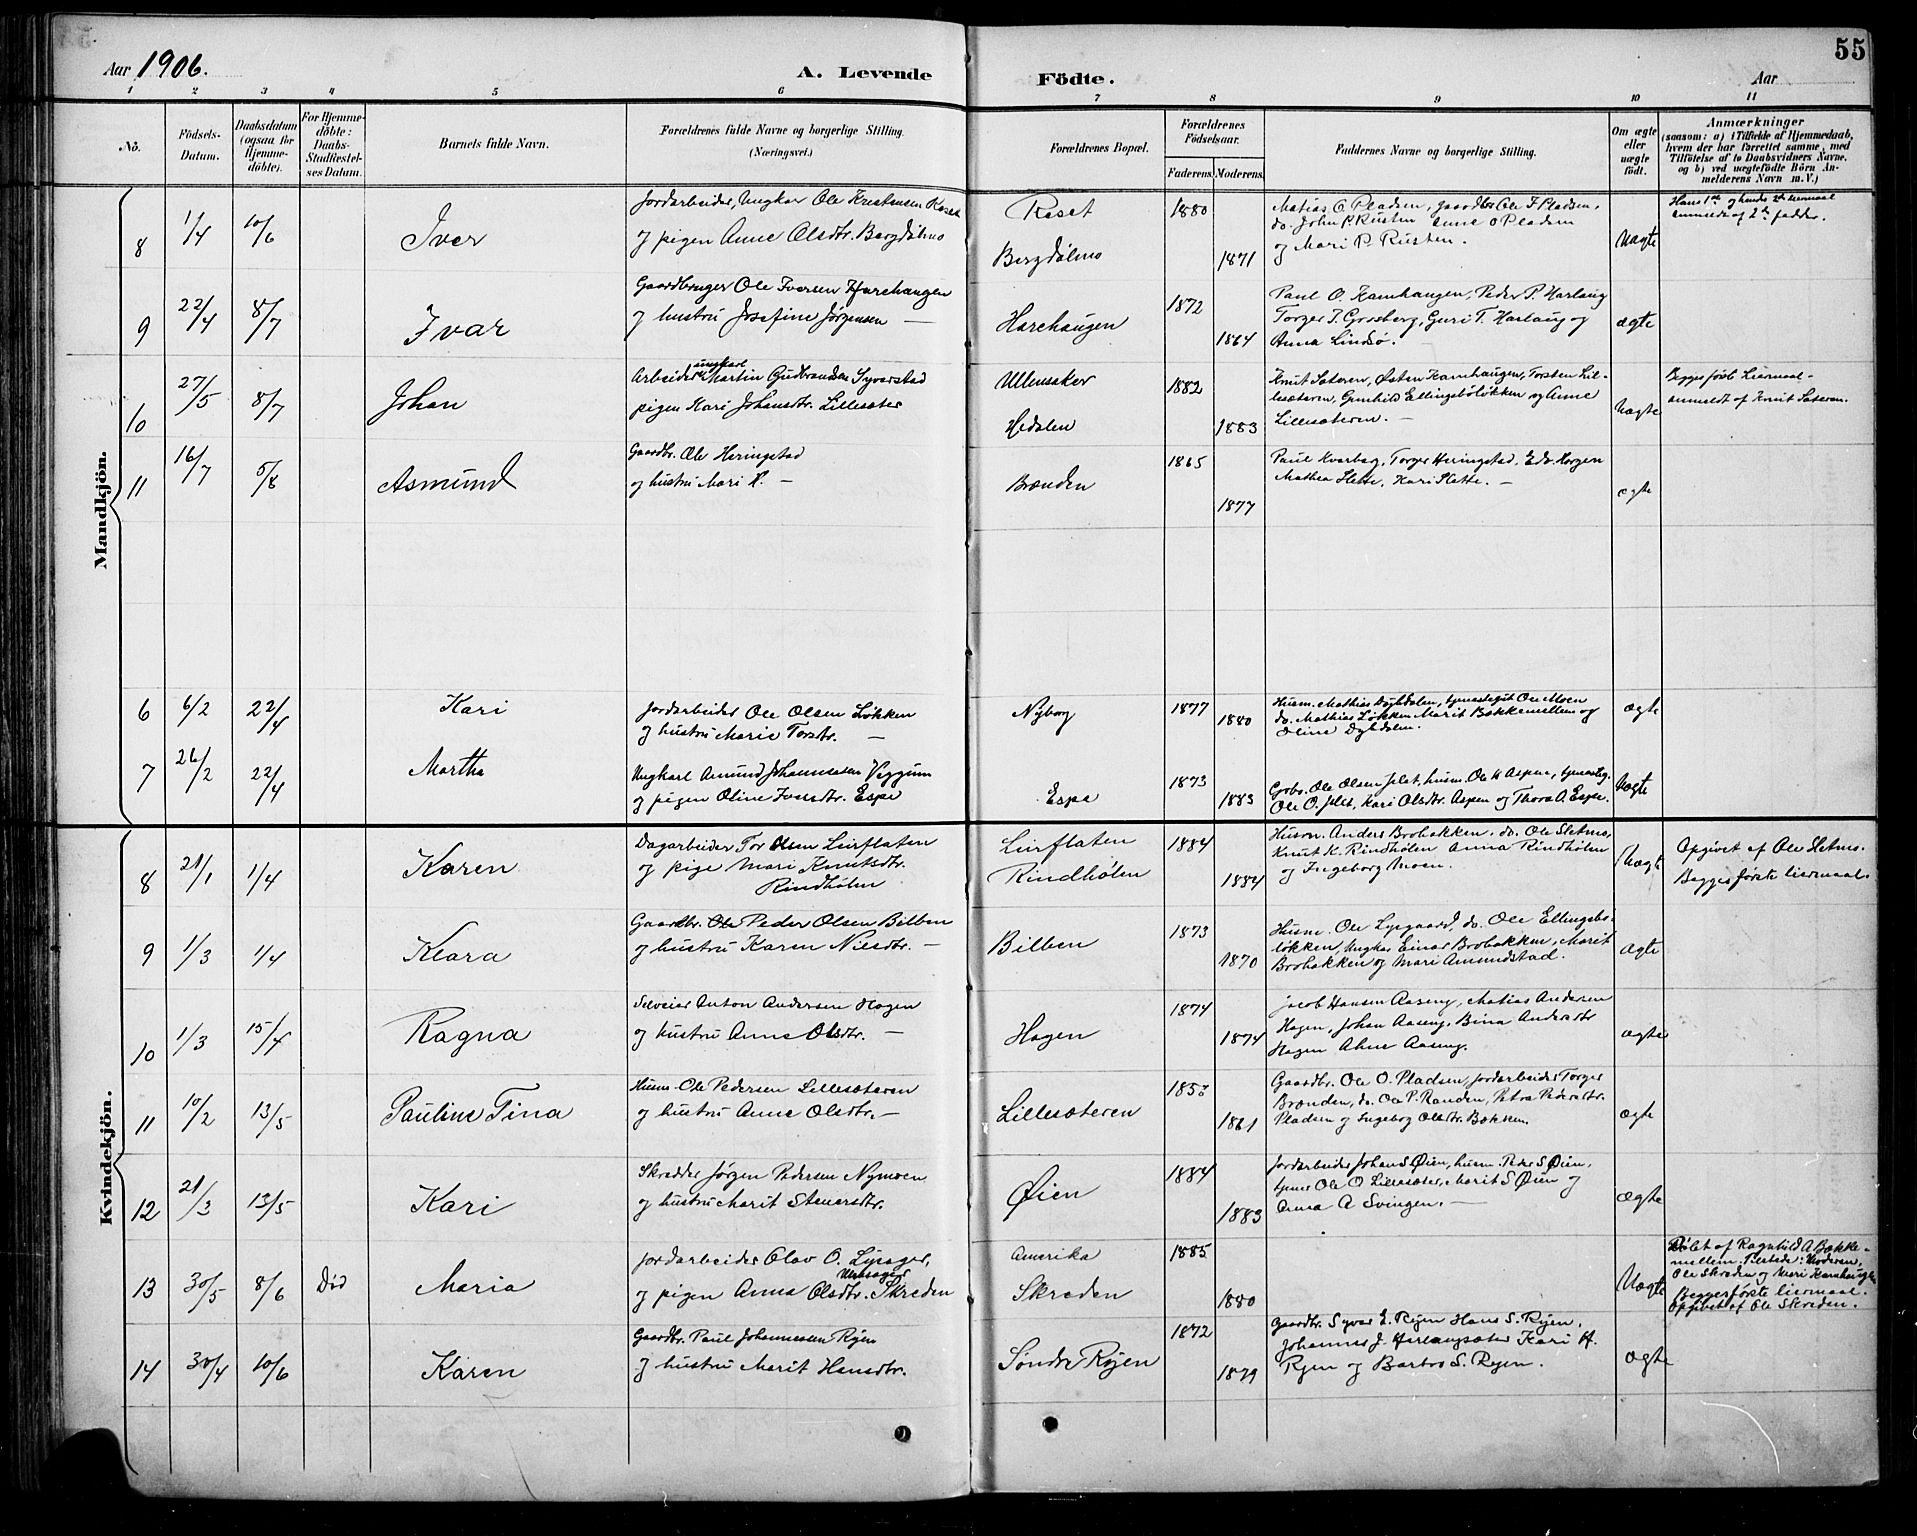 55
Aar 1906.
A. Levende Födte.
Aar
1 2 3 4 5 6 7 8 9 10 11
No.
Födsels-Datum.
Daabsdatum (ogsaa for Hjemmedöbte).
For Hjemmedöbte: Daabs-Stadfæstelses Datum.
Barnets fulde Navn.
Forældrenes fulde Navne og borgerlige Stilling. (Næringsvei.)
Forældrenes Bopæl.
Forældrenes Födselsaar.
Faderens. Moderens.
Faddernes Navne og borgerlige Stilling.
Om ægte eller uægte födt.
Anmærkninger
(saasom: a) i Tilfælde af Hjemmedaab, hvem der har forrettet samme, med Tilföielse af to Daabsvidners Navne, og b) ved uægtefödte Börn Anmelderens Navn m. V.)
Mandkjön.
8 1/4 10/6 Iver
Jordarbeider, Ungkar Ole Kristensen Roset
og pigen Anne Olsdtr. Bergdølmo
Roset
Bergdølmo
1880
1871
Matias O Pladsen, gaardbr Ole F Pladsen,
do. John P. Rusten Anne O Pladsen
og Mari P. Rusten.
Uægte
Hans 1ste og hendes 2det leiermaal
anmeldt af 2den fadder.
9 22/4 8/7 Ivar
Gaardbruger Ole Iversen Harehaugen
og hustru Josefine Jørgensen —
Harehaugen
1872
1864
Paul O. Kamhaugen, Peder P. Harlaug
Torger T. Grosberg, Guri T. Harlaug og
Anna Lindsø.
ægte
10 27/5 8/7 Johan
Arbeider ungkarl Martin Gudbrandsen Syverstad
pigen Kari Johansdtr. Lillesæter
Ullensaker
Hedalen
1882
1883
Knut Sæteren, Østen Kamhaugen, Torsten Lil-
lesæteren, Gunhild Ellingsbøløkken og Anne
Lillesæteren. —
Uægte
Begges første Leiermaal —
anmeldt af Knut Sæteren.
11 16/7 5/8 Asmund
Gaardbr. Ole Heringstad
og hustru Mari K. —
Brænden
1865
1877
Paul Kvarbag, Torger Heringstad, Edv. Horgen
Mathea Slette, Kari Slette. —
ægte
6 6/2 22/4 Kari
Jordarbeider Ole Olsen Løkken
og hustru Marie Torsdtr. —
Nyborg
1877
1880
Husm. Mathias Dyhdalen, tjenestegut Ole Moen
do. Mathias Løkken Marit Bakkemellem og
Oline Dyhdalen.
ægte
7 26/2 22/4 Martha
Ungkarl Amund Johannesen Veggum
og pigen Oline Iversdtr. Espe
Espe
1873
1883
Gbr. Ole Olsen Jelet, husm. Ole H Aspen, tjenesteg.
Ole O. Jelet, Kari Olsdtr. Aspen og Thora A. Espe.
Uægte
Kvindekjön.
8 21/1 1/4 Karen
Dagarbeider Tor Olsen Lurflaten
og pige Mari Knutsdtr.
Rindhølen
Lurflaten
Rindhølen
1884
1884
Husm. Anders Brobakken, do. Ole Sletmo,
Knut K. Rindhølen Anna Rindhølen
og Ingeborg Moen.
Uægte
Opgivet af Ole Sletmo.
Begges første leiermaal.
9 1/3 1/4 Klara
Gaardbr. Ole Peder Olsen Bilben
og hustru Karen Nilsdtr. —
Bilben
1873
1870
Husm. Ole Lysgaard, do. Ole Ellingsbø-
løkken, Ungkar Einar Brobakken, Marit
Brobakken og Mari Amundstad.
ægte
10 1/3 15/4 Ragna
Selveier Anton Andersen Hagen
og hustru Anne Olsdtr. —
Hagen
1874
1874
Jacob Hansen Aaseng, Matias Andersen
Hagen, Johan Aaseng, Bina Andersdtr
Hagen Anne Aaseng.
ægte
11 10/2 13/5 Pauline Tina
Husm. Ole Pedersen Lillesæteren
og hustru Anne Olsdtr. —
Lillesæteren
1853
1861
Gaardbr. Ole O. Pladsen, Jordarbeider Torger
Brænden, do. Ole P. Randen, Petra Pedersdtr.
Pladsen og Ingeborg Olsdtr. Bakken.
ægte
12 21/3 13/5 Kari
Skredder Jørgen Pedersen Nymoen
og hustru Marit Stenersdtr.
Øien
1884
1883
Jordarbeider Johan S Øien, husm. Peder S Øien,
tjener Ole O Lillesæter, Marit S Øien og
Anna A Svingen. —
ægte
13 30/5 8/6 Død Maria
Jordarbeider Olav O. Lysager,
og pigen Anna Olsdtr. Skreden
Amerika
Skreden
1885
1880
Uægte
Døbt af Ragnhild A Bakke-
mellem. Tilstede: Moderen,
Ole Skreden og Mari Kamhaugen
Begges første leiermaal.
Opgivet af Ole Skreden.
14 30/4 10/6 Karen
Gaardbr. Paul Johannessen Røjen
og hustru Marit Hansdtr.
Søndre Røjen
1872
1879
Gaardbr. Syver E. Røjen Hans S. Røjen,
Johannes J. Herlaugsæter Kari H.
Røjen og Barbro S. Røjen.
ægte